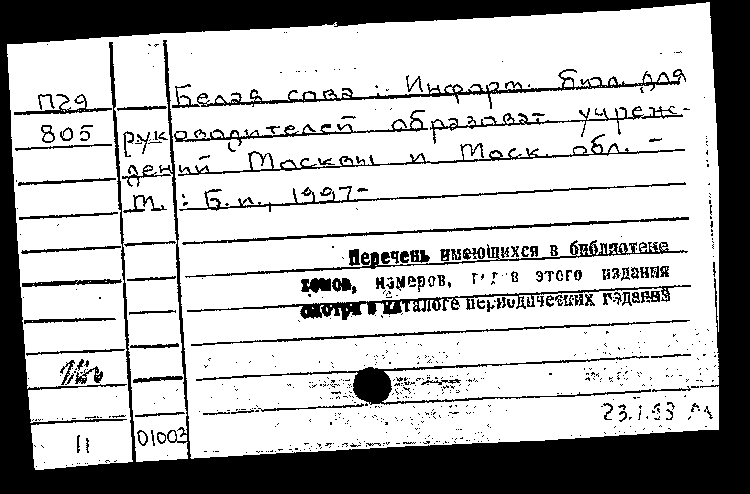 П29 Белая сова : Информ. бюл. для
805 руководителей образоват. учреж-
дений Москвы и Моск. обл. –
М. : Б.и., 1997-
Перечень имеющихся в библиотеке
томов, номеров, в этого издания
смотри в каталоге периодических изданий
23.1.93
11 01002